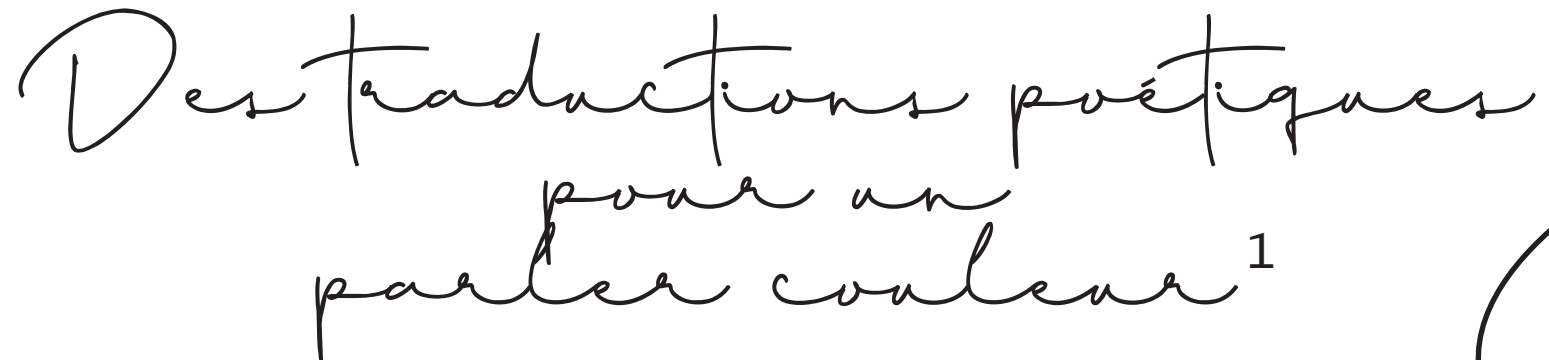 Des traductions poétiques
pour un
parler couleur¹